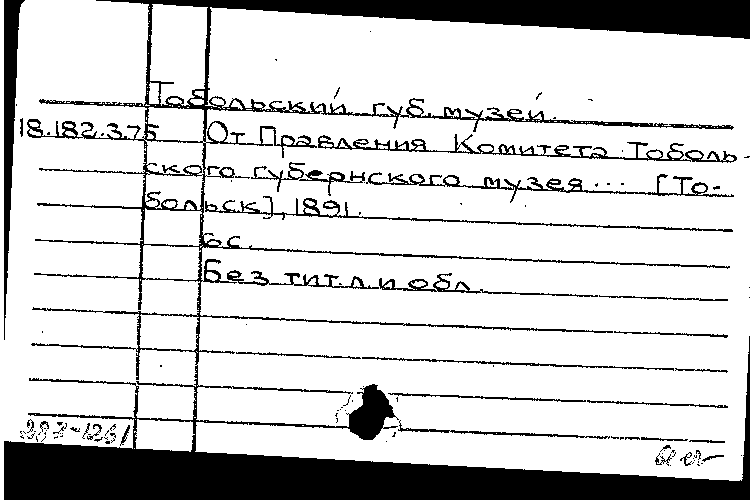 Тобольский губ. музей.
18.182.3.75 От Правления Комитета Тоболь-
ского губернского музея... [То-
больск], 1891.
6с.
Без тит. л. и обл.
287-1261